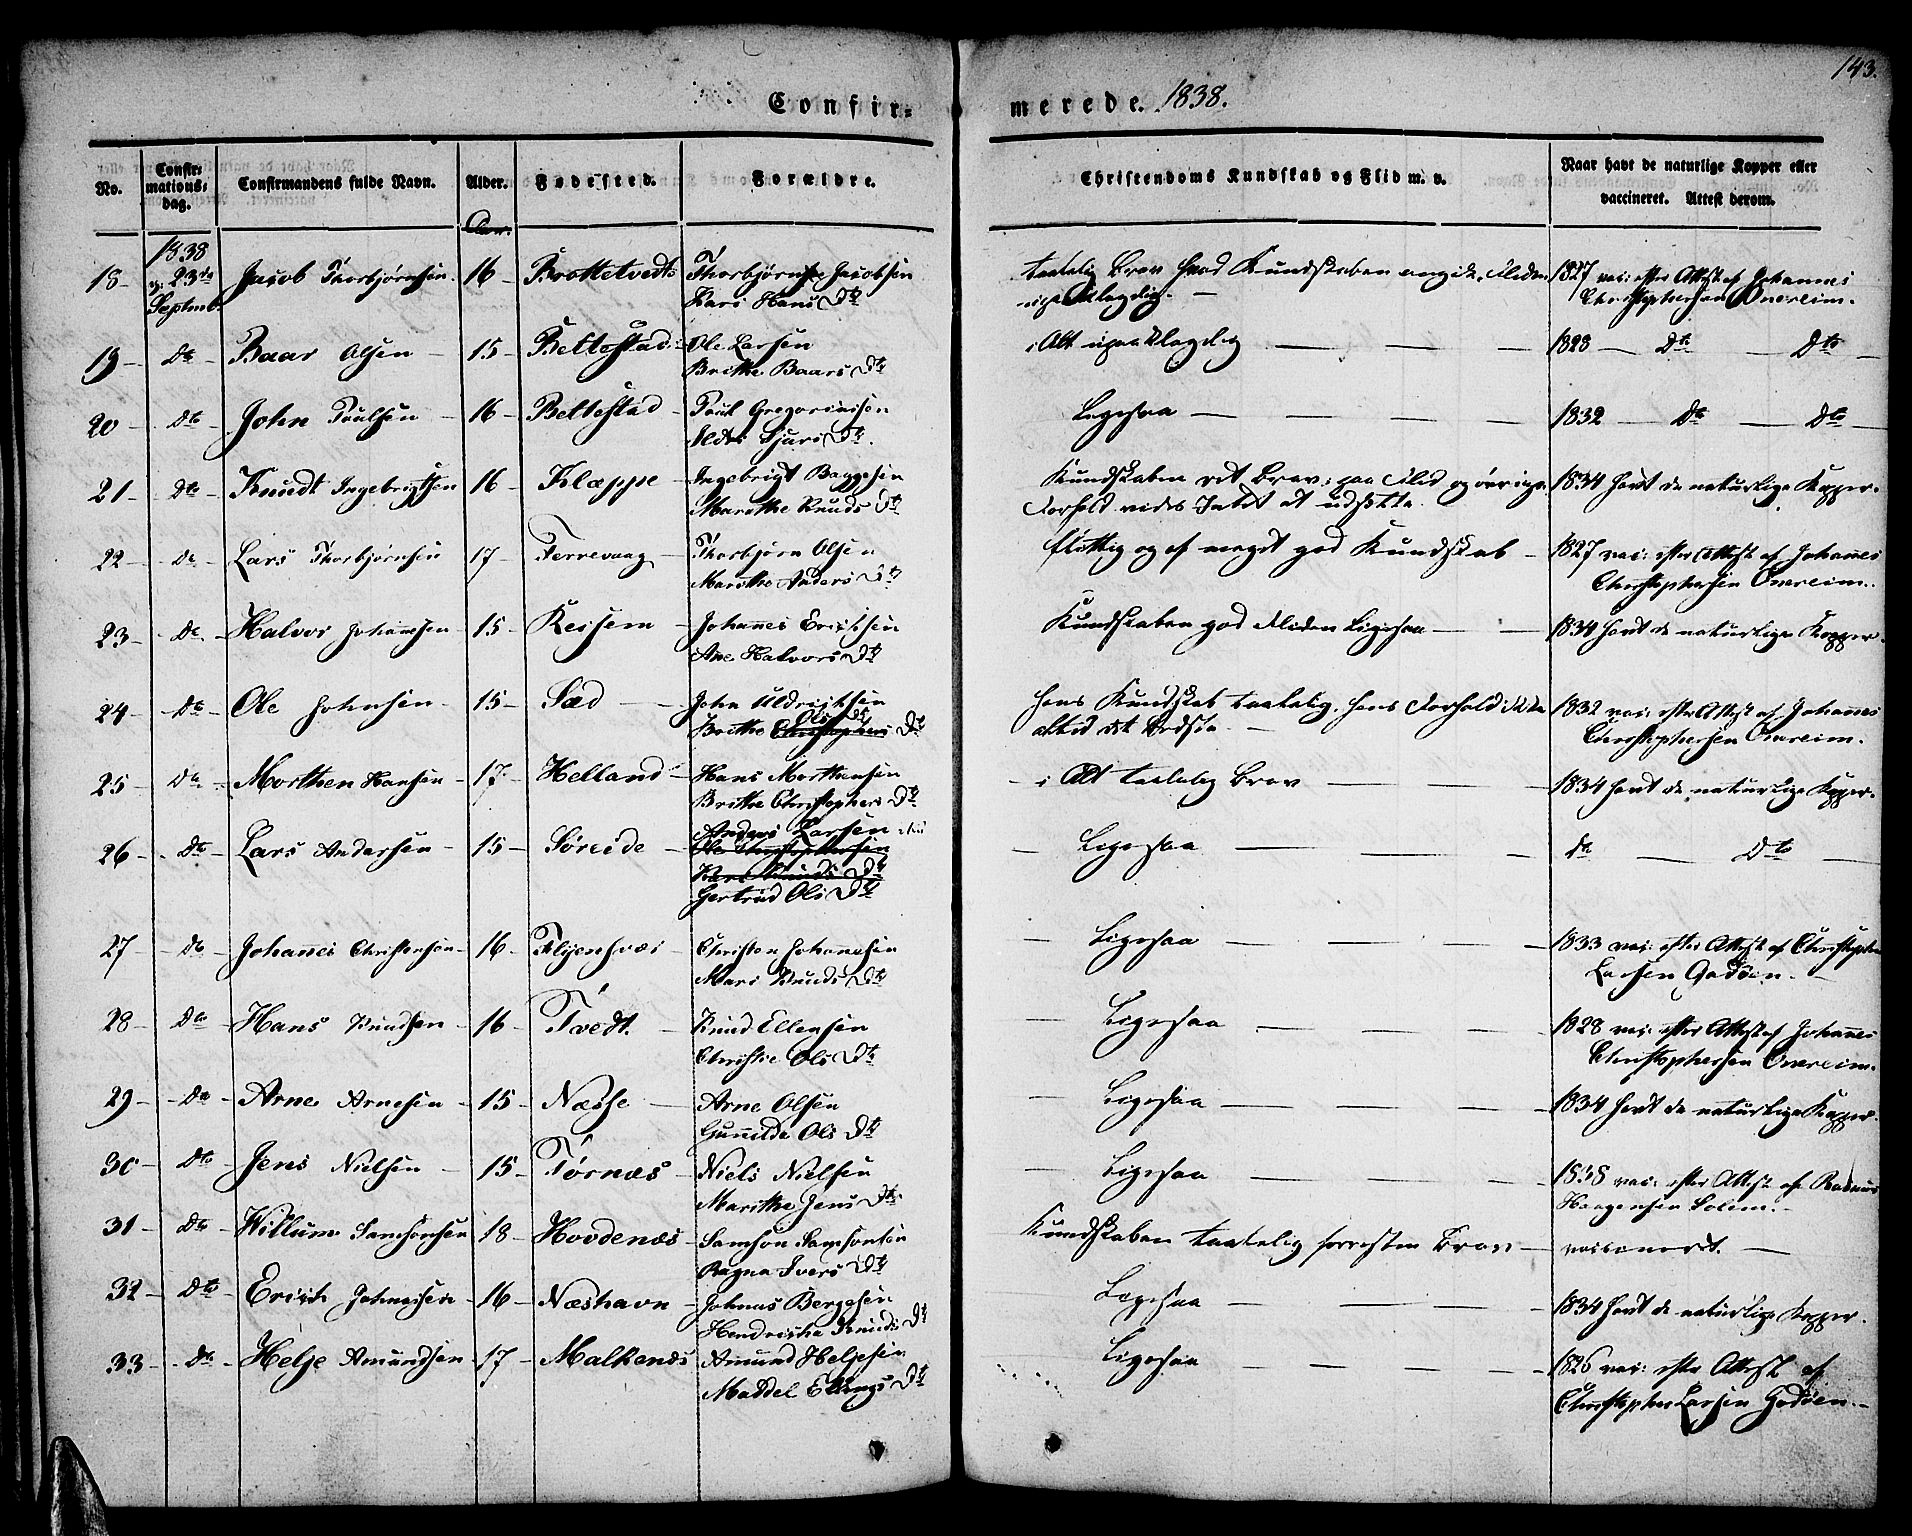 143.
Confir= merede. 1838.
No. Confirmations= dag. Confirmandens fulde Navn. Alder. Fødested. Forældre. Christendoms Kundskab og Flid m. v. Naar havt de naturlige Kopper eller vaccineret. Attest derom.
Aar.
18 1838 23de Septmb. Jacob Thorbjørnsen 16 Brottetvedt Thorbjørn Jacobsen
Kari Hans Dtr
taalelig Brav hvad Kundskaben angik, Fliden
upaaklagelig.
1827 vac: efter Attest af Johannes
Christophersen Onereim.
19 Do Baar Olsen 15 Bellestad Ole Larsen
Brithe Baars Dtr
i Alt upaaklagelig
1828 Do Dto
20 Dto John Poulsen 16 Bellestad Poul Gregoriusen
Sjurs Dtr
Ligesaa
1832 Do Dto
21 Dto Knudt Ingebrigtsen 16 Klæppe Ingebrigt Baggesen
Marethe Knuds Dtr
Kundskaben ret Brav; paa Flid og øvrige
Forhold vides Intet at udsætte.
1834 havt de naturlige Kopper.
22 Do Lars Thorbjørnsen 17 Ferrevaag Thorbjørn Olsen
Marethe Anders Dtr
flittig og af meget god Kundskab
1827 vac: efter Attest af Johannes
Christophersen Onereim.
23 Do Halvor Johannesen 15 Reissem Johannes Eriksen
Ane Halvors Dtr
Kundskaben god Fliden Ligesaa
1834 havt de naturlige Kopper.
24 Do Ole Johnsen 15 Sæd John Uldriksen
Ols Dtr
Brithe Christophers Dtr
hans Kundskab taalelig, hans Forhold ikke
altid det bedste.
1832 vac: efter Attest af Johannes
Christophersen Onereim.
25 Do Morthen Hansen 17 Helland Hans Morthensen
Brithe Christophers Dtr
i Alt taalelig Brav
1834 havt de naturlige Kopper.
26 Do Lars Andersen 15 Søreide Anders Larsen
Ole Christophersen
Kari Knuds Dtr
Gertrud Ols Dtr
Ligesaa
do Dto
27 Do Johannes Christensen 16 Christen Johannesen
Mari Knuds Dtr
Ligesaa
1833 vac: efter Attest af Christopher
Larsen Godøen.
28 Do Hans Knudsen 16 Tvedt Knud Ellensen
Christie Ols Dtr
Ligesaa
1828 vac: efter Attest af Johannes
Christophersen Onereim.
29 Do Arne Arnesen 15 Næsse Arne Olsen
Gunnilde Ols Dtr
Ligesaa
1834 havt de naturlige Kopper.
30 Dto Jens Nielsen 15 Tørnæs Niels Nielsen
Marithe Jens Dtr
Ligesaa
1838 vac: efter Attest af Rasmus
Haagensen Solem.
31 Do Willum Samsonsen 18 Hovdenæs Samson Samsonsen
Ragna Ivers Dtr
Kundskaben taalelig forresten Brav
vaccineret.
32 Dto Erich Johnesen 16 Næshavn Johnas Bergesen
Hendricha Knuds Dtr
Ligesaa
1834 havt de naturlige Kopper.
33 Do Helje Amundsen 17 Malkenæs Amund Heljesen
Maddel Ellings Dtr
Ligesaa
1826 vac: efter Attest af
Christopher Larsen Godøen.